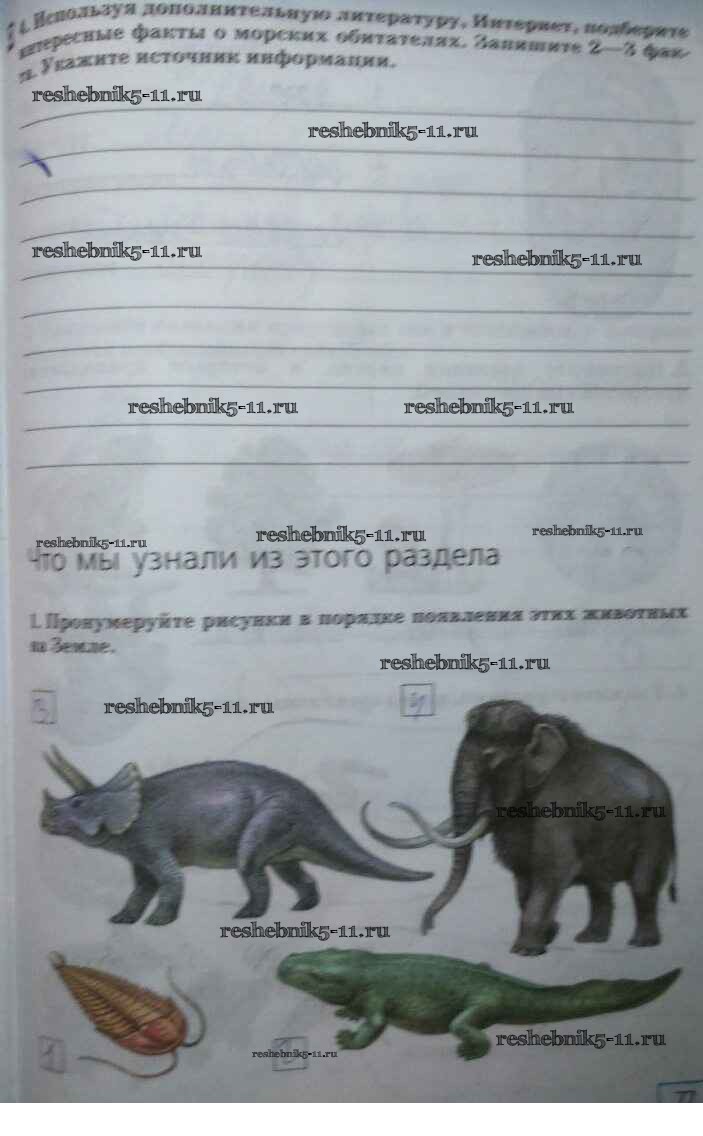 4. Используя дополнительную литературу, Интернет, подберите
интересные факты о морских обитателях. Запишите 2—3 фак-
та. Укажите источник информации.
reshebnik5-11.ru
reshebnik5-11.ru
reshebnik5-11.ru
reshebnik5-11.ru
reshebnik5-11.ru
reshebnik5-11.ru
reshebnik5-11.ru
reshebnik5-11.ru
reshebnik5-11.ru
Что мы узнали из этого раздела
1. Пронумеруйте рисунки в порядке появления этих животных
на Земле.
reshebnik5-11.ru
3
reshebnik5-11.ru
4
reshebnik5-11.ru
reshebnik5-11.ru
reshebnik5-11.ru
1
reshebnik5-11.ru
77